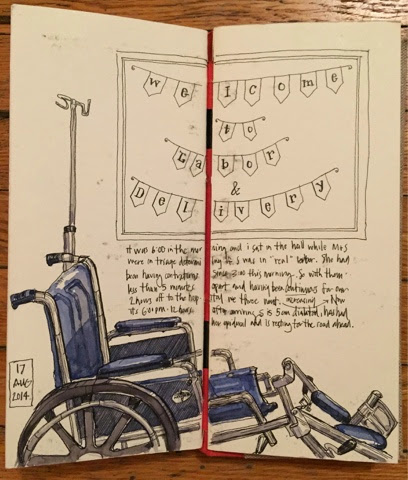 Welcome
to
Labor
&
Delivery
It was 6:00 in the morning and i sat in the hall while Mrs
were in triage determining if S was in "real" labor. She had
been having contractions since 3:00 this morning. So with them
less than 5 minutes apart and having been continuous for over
2 hours off to the hosp we three went. Now
its 6:01pm - 12 hours after arriving S is 5cm dilated, has had
her epidural and is resting for the road ahead.
17
AUG
2014